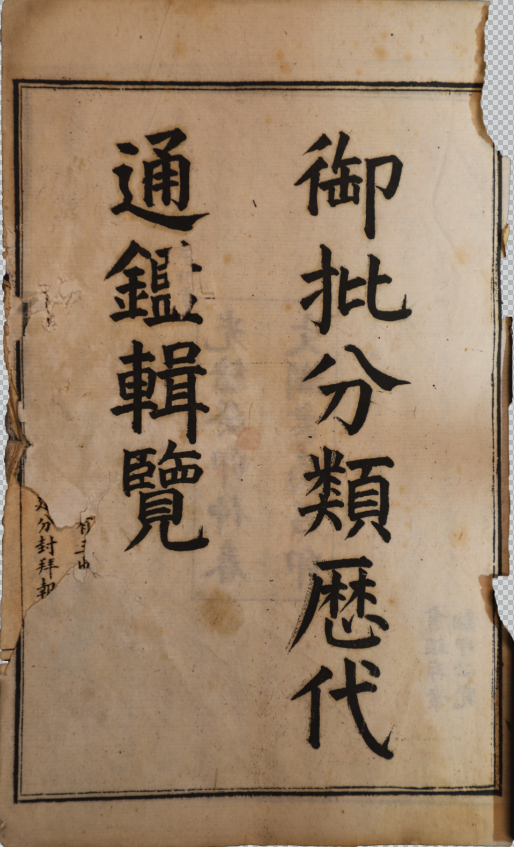 御批分類歴代
通鑑輯覽
分封拜